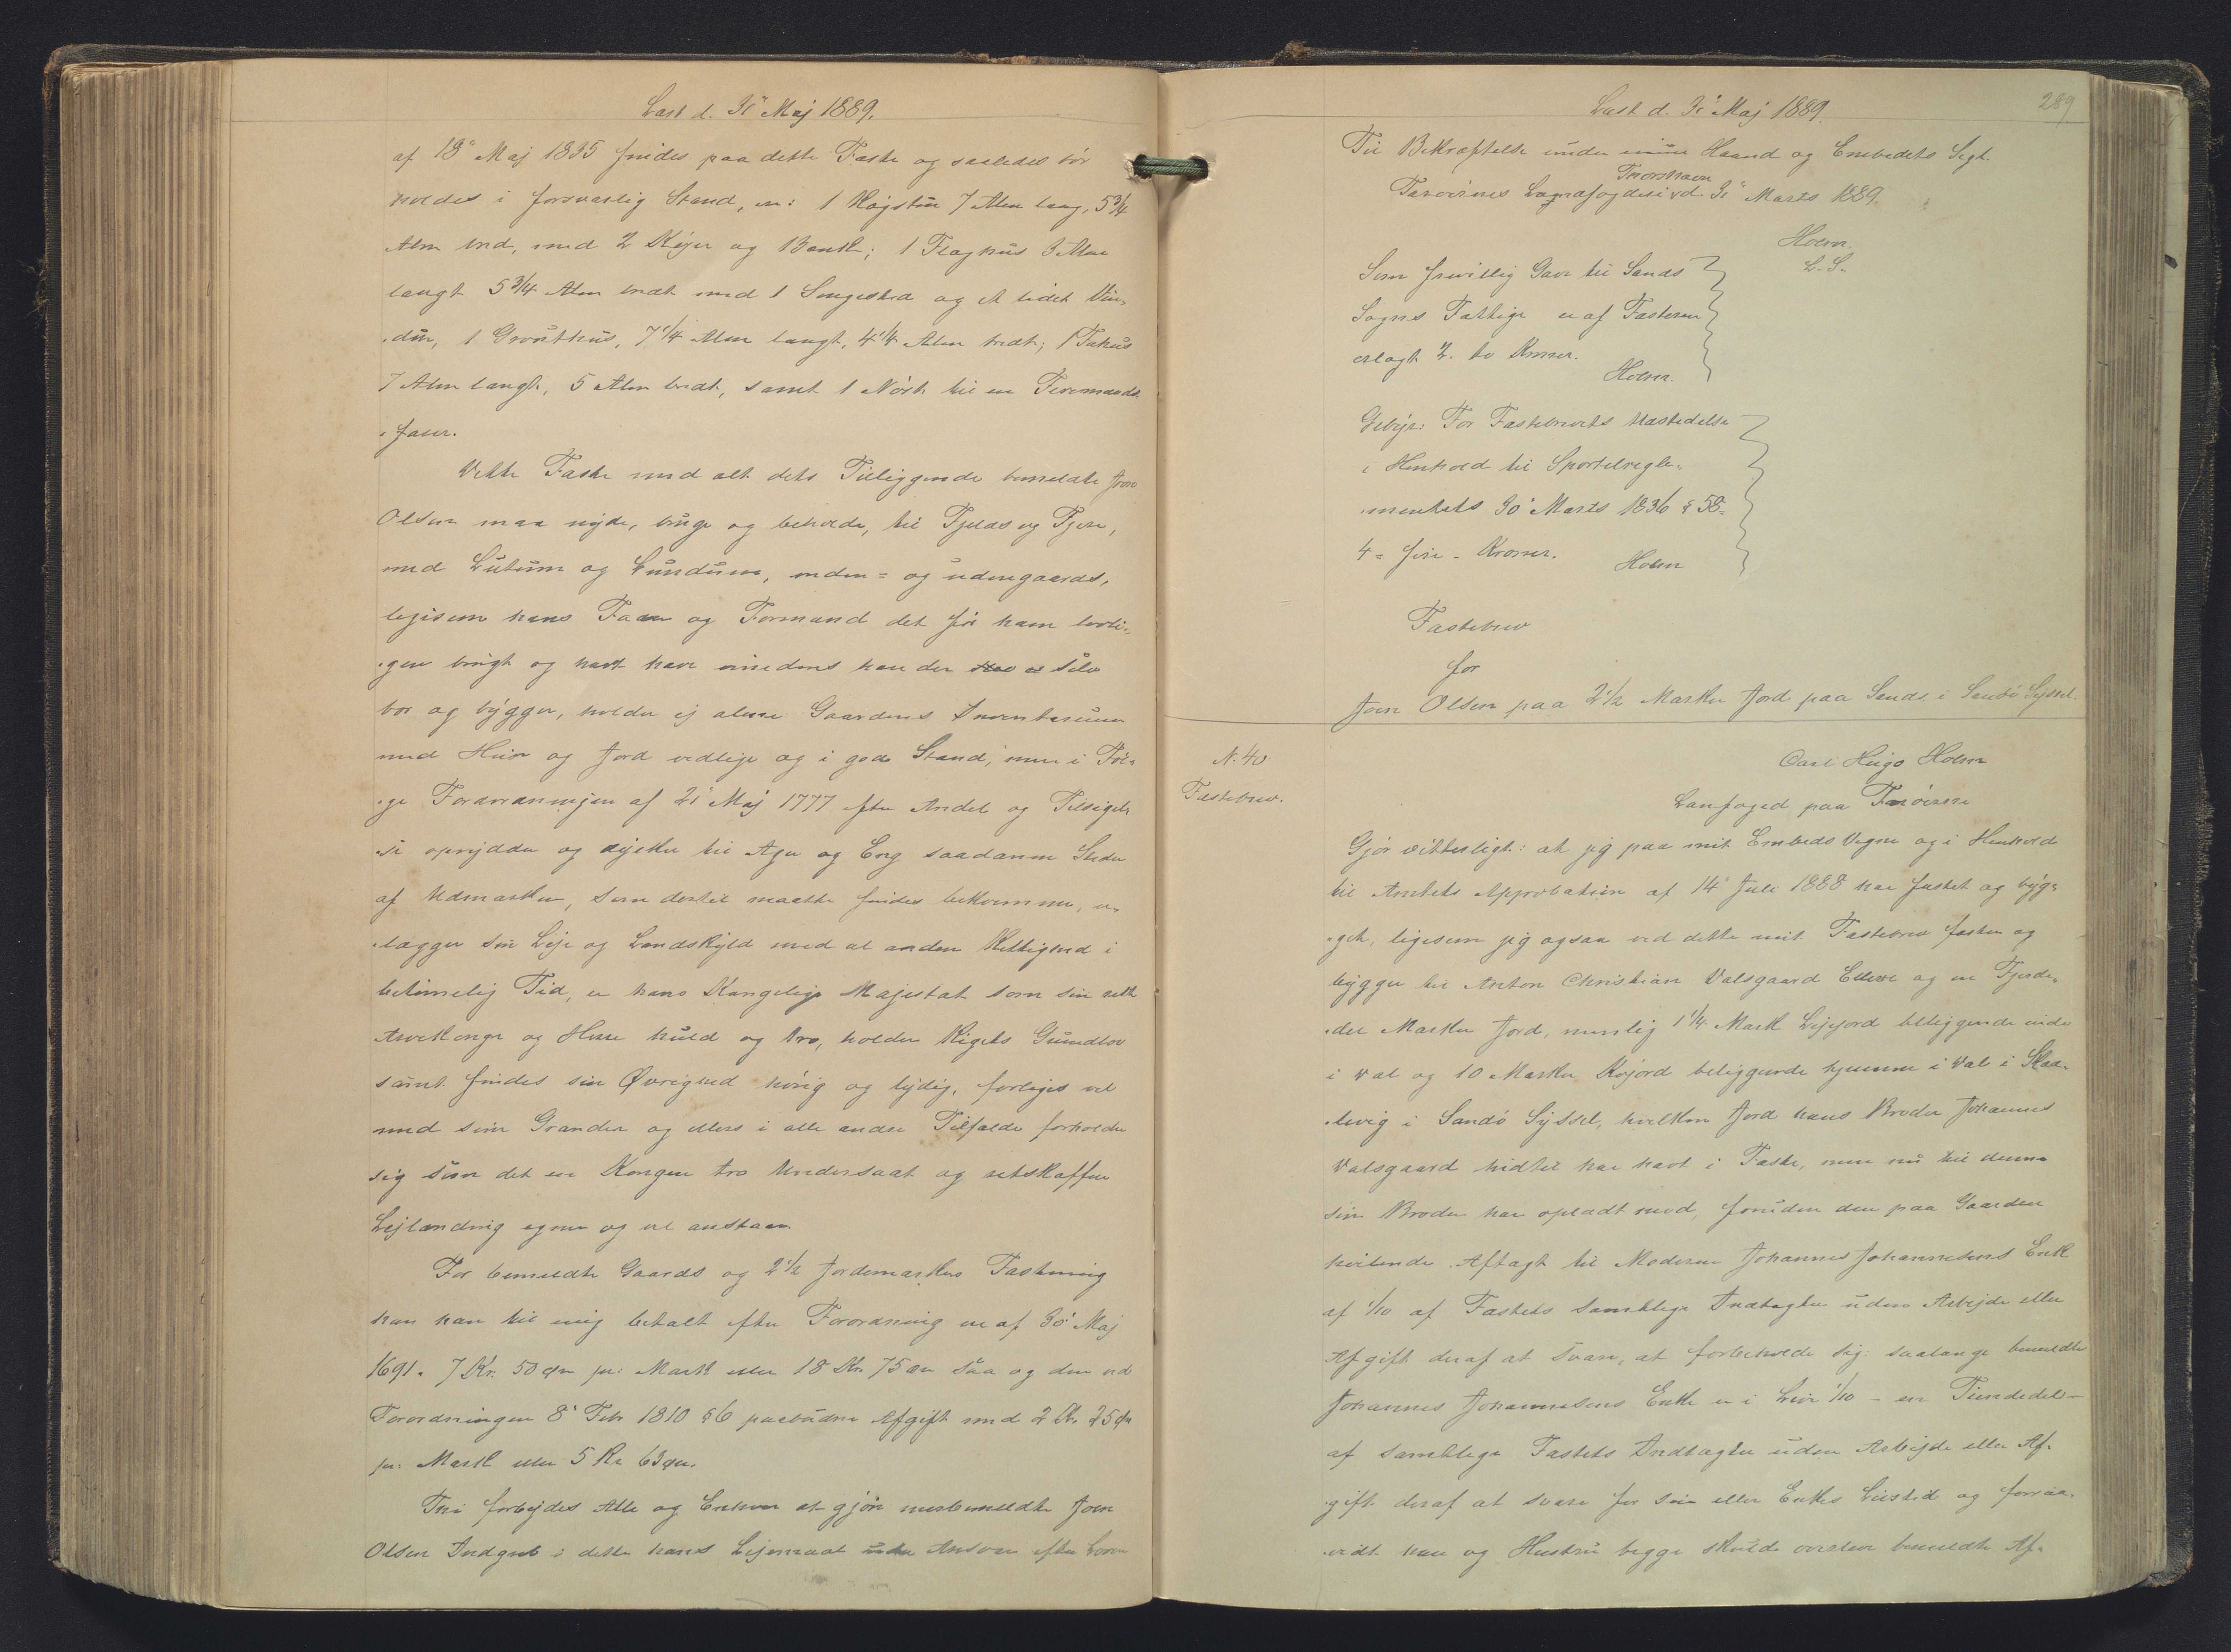 Læst d. 31' Maj 1889.
af 18' Maj 1885 findes paa dette Fæste og saaledes bör
holdes i forsvarlig Stand, er: 1 Rögstue 7 Alen lang, 5 3/4
Alen bred, med 2 Köjer og Bænk; 1 Flaghus 3 Alen
langt 5 3/4 Alen bredt med 1 Sengested og et lidet Vin-
due, 1 Grouthus, 7 1/4 Alen langt, 4 1/4 Alen bredt;
7 Alen langt, 5 Alen bredt, samt 1 Nöst til en Firemands-
far.
Dette Fæste med alt dets Tilliggende bemeldte Joen
Olsen maa nyde, bruge og beholde, til Fjelds og Fjære,
med Luttum og Lundum, inden- og udengaards,
ligesom hans Fader og Formand det för ham lovli-
gen brugt og havt have imedens han der selv
bor og bygger, holder ej alene Gaardens Inventarium
med Huse og Jord vedlige og i god Stand, men i Föl-
ge Forordningen af 21' Maj 1777 efter Andel og Tilsigel-
se oprydder og dyrker til Ager og Eng saadanne Steder
af Udmarken, som dertil maatte findes bekvemme, er-
lægger sin Leje og Landskyld med al anden Rettighed i
betimelig Tid, er hans Kongelige Majestæt som sin rette
Arvekonge og Herre huld og tro, holder Rigets Grundlov
samt findes sin Øvrighed hörig og lydig, forliges vel
med sine Grander og ellers i alle andre Tilfælde forholder
sig som det en Kongen tro Undersaat og retskaffen
Lejlænding egner og vel anstaar.
For bemeldte Gaards og 2 1/2 Jordemarkers Fæstning
har han til mig betalt efter Forordning en af 30' Maj
1691. 7 Kr. 50 Øre pr. Mark eller 18 Kr. 75 Øre saa og den ved
Forordningen 8' Febr 1810 § 6 paabudne Afgift med 2 Kr. 25 Øre
pr. Mark eller 5 Kr 63 Øre.
Thi forbydes Alle og Enhver at gjöre merbemeldte Joen
Olsen Indgreb i dette hans Lejemaal under Ansvar efter Loven
Læst d. 31' Maj 1889.
289
Til Bekræftelse under min Haand og Embedets Segl.
Thorshavn
Færöernes Landfogderi d. 31' Marts 1889.
Holm.
L. S.
Som frivillig Gave til Sands
Sogns Fattige er af Fæsteren
erlagt 2. to Kroner.
Holm.
Gebyr: For Fæstebrevets Udstedelse
i Henhold til Sportelregle-
mentets 30' Marts 1836 § 58-
4 - fire - Kroner.
Holm
Fæstebrev
for
Joen Olsen paa 2 1/2 Marker Jord paa Sands i Sandö Syssel
N. 40
Fæstebrev.
Carl Hugo Holm
Lanfoged paa Færöerne
Gjör vitterligt: at jeg paa mit Embeds Vegne og i Henhold
til Amtets Approbation af 14' Juli 1888 har fæstet og byg-
get, ligesom jeg ogsaa ved dette mit Fæstebrev fæster og
bygger til Anton Christian Dalsgaard Elleve og en Fjerde-
del Marker Jord, nemlig 1 1/4 Mark Lejejord beliggende inde
i Dal og 10 Marker Kojord beliggende hjemme i Dal i Skaa-
levig i Sandö Syssel, hvilken Jord hans Broder Johannes
Dalsgaard hidtil har havt i Fæste, men nu til denne
sin Broder har opladt mod, foruden den paa Gaarden
hvilende Aftægt til Moderen Johannes Johannesens Enke
af 1/10 af Fæstets samtlige Indtægter uden Arbejde eller
Afgift deraf at svare, at forbeholde sig: saalænge bemeldte
Johannes Johannesens Enke er i Live 1/10 - en Tiendedel -
af samtlige Fæstets Indtægter uden Arbejde eller Af-
gift deraf at svare for sin eller Enkes Livstid og forsaa-
vidt han og Hustru begge skulde overleve bemeldte Af-